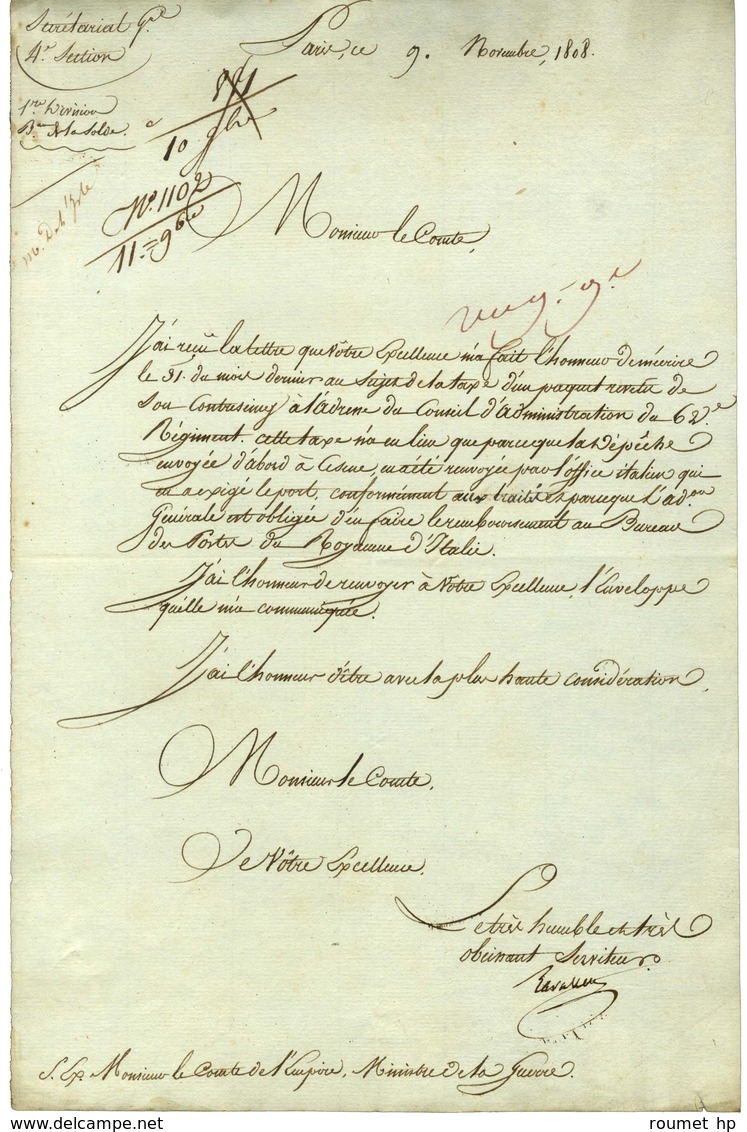 Secrétariat Gal
4e Section
Paris, ce 9. Novembre, 1808.
1ere Division
Bau de la Solde.
10 9bre
No. 1102
11 = 9bre
Monsieur le Comte,
J'ai reçu la lettre que Vôtre Excellence m'a fait l'honneur de m'écrire
le 31. du mois dernier au sujet de la taxe d'un paquet revetu de
son Contreseing à l'adresse du Conseil d'administration du 62e.
Régiment. cette taxe n'a eu lieu que parceque la Dépêche
envoyée d'abord à Cesene, en a été renvoyée par l'office italien qui
en a exigé le port, conformément aux traités et parceque l'adon
Générale est obligée d'en faire le remboursement au Bureau
des Postes du Royaume d'Italie.
J'ai l'honneur de renvoyer à Votre Excellence, l'Enveloppe
qu'elle m'a communiquée.
J'ai l'honneur d'être avec la plus haute considération,
Monsieur le Comte,
De Vôtre Excellence,
Le très humble et très
obéissant Serviteur.
Lavallette
S. Ex. Monsieur le Comte de l'Empire, Ministre de la Guerre.
roumet hp